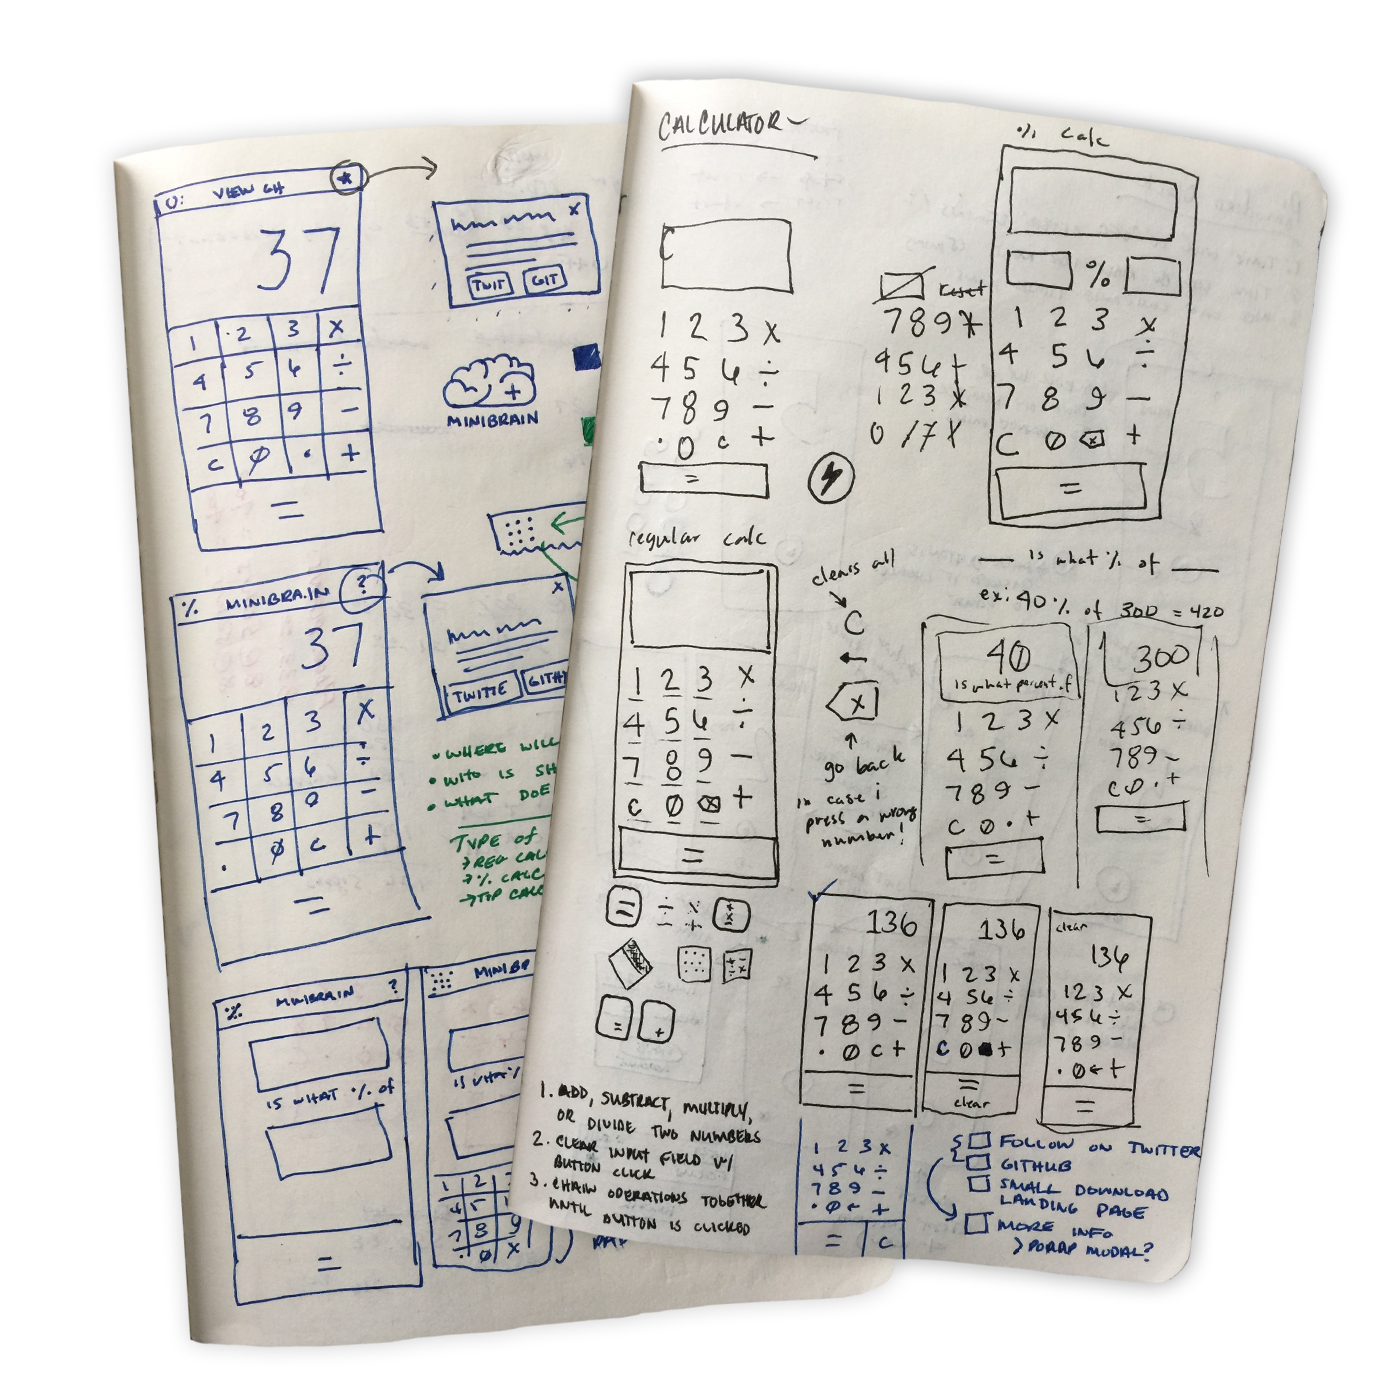 VIEW GH
37
1 2 3 X
4 5 6 ÷
7 8 9 -
C 0 . +
=
X
TWIT GIT
+
MINIBRAIN
% MINIBRAIN ?
37
1 2 3 X
4 5 6 ÷
7 8 9 -
. 0 C +
=
X
TWITTE GITH
• WHERE WILL
• WHO IS SH
• WHAT DOE
TYPE OF
→ REG CAL
→ % CALC
→ TIP CALC
% MINIBRAIN ?
IS WHAT % OF
=
MINIBR
IS WHAT %
1 2
4 5
7 8 9
. 0 X
CALCULATOR
C
1 2 3 X
4 5 6 ÷
7 8 9 -
. 0 C +
=
reset
7 8 9
4 5 6 +
1 2 3 X
0
% calc
%
1 2 3 X
4 5 6 ÷
7 8 9 -
C 0 X +
=
regular calc
1 2 3 X
4 5 6 ÷
7 8 9 -
C 0 X +
=
clears all
C
←
X
go back
in case i
press a wrong
number!
___ is what % of ___
ex: 40% of 300 = 420
40
is what percent of
1 2 3 X
4 5 6 ÷
7 8 9 -
C 0 . +
=
300
1 2 3 X
4 5 6 ÷
7 8 9 -
C 0 . +
=
=
÷ X
- +
=
+
136
1 2 3 X
4 5 6 ÷
7 8 9 -
. 0 C +
=
136
1 2 3 X
4 5 6 ÷
7 8 9 -
C 0 +
=
clear
clear
136
1 2 3 X
4 5 6 ÷
7 8 9 -
. 0 ← +
=
1. ADD, SUBTRACT, MULTIPLY,
OR DIVIDE TWO NUMBERS
2. CLEAR INPUT FIELD W/
BUTTON CLICK
3. CHAIN OPERATIONS TOGETHER
UNTIL BUTTON IS CLICKED
1 2 3 X
4 5 6 ÷
7 8 9 -
. 0 ← +
= C
FOLLOW ON TWITTER
GITHUB
SMALL DOWNLOAD
LANDING PAGE
MORE INFO
MODAL?